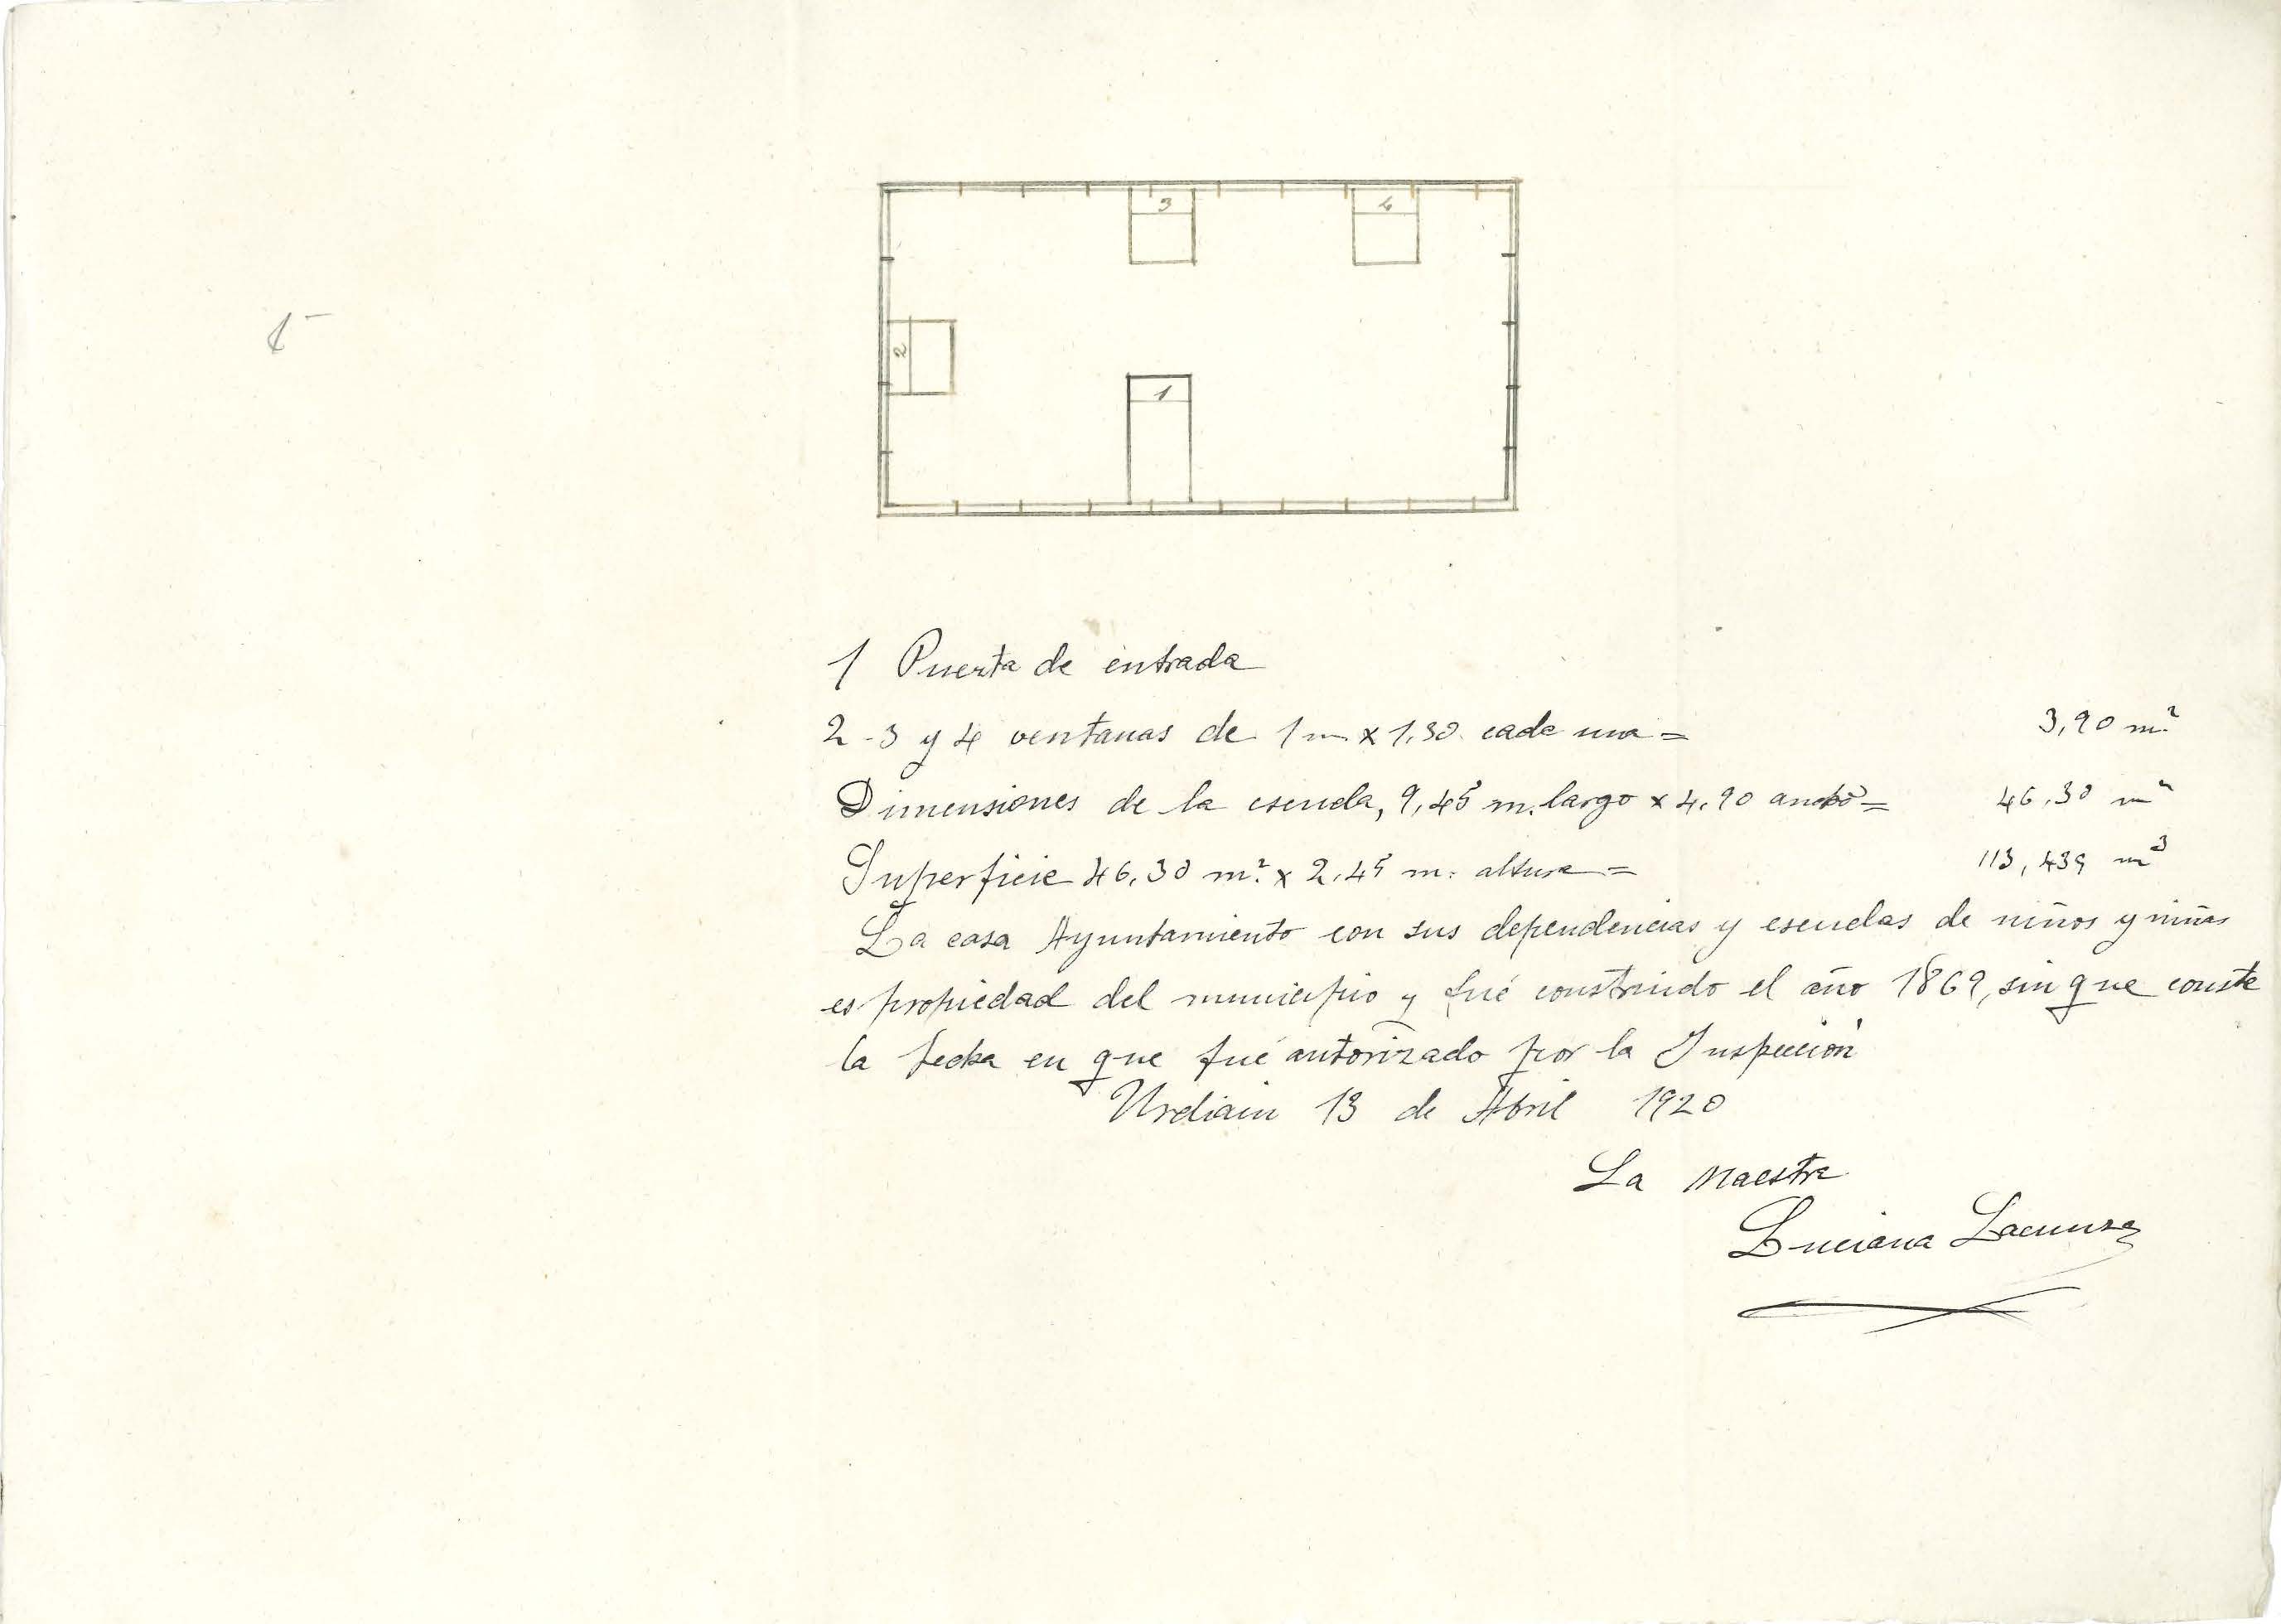 3
4
2
1
1 Puerta de entrada
2-3 y 4 ventanas de 1 m x 1,30 cada una = 3,90 m²
Dimensiones de la escuela, 9,45 m. largo x 4,90 ancho = 46,30 m²
Superficie 46,30 m² x 2,45 m. altura = 113,435 m³
La casa Ayuntamiento con sus dependencias y escuelas de niños y niñas
es propiedad del municipio y fué construido el año 1869, sin que conste
la fecha en que fué autorizado por la Inspección
Urdiain 13 de Abril 1920
La Maestra
Luciana Lacunza